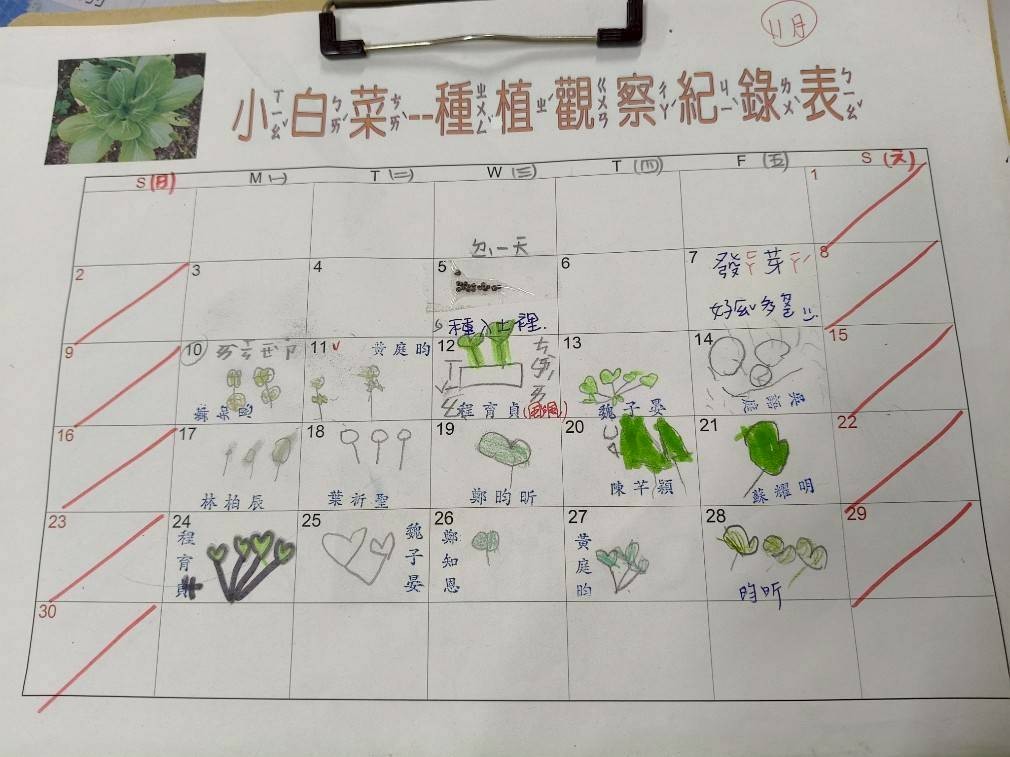 11月
小白菜--種植觀察紀錄表
S(日) M(一) T(二) W(三) T(四) F(五) S(六)
1
2 3 4 5 6 7 8
種入土裡.
發芽
9 10 11 12 13 14 15
黃庭昀
程育貞
魏子晏
16 17 18 19 20 21 22
林柏辰
葉祈聖
鄭昀昕
陳芊穎
蘇耀明
23 24 25 26 27 28 29
程育貞
魏子晏
鄭知恩
黃庭昀
昀昕
30